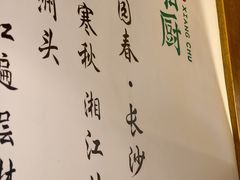 厨
XIANG CHU
园春·长沙
寒秋 湘江
洲头
遍 层